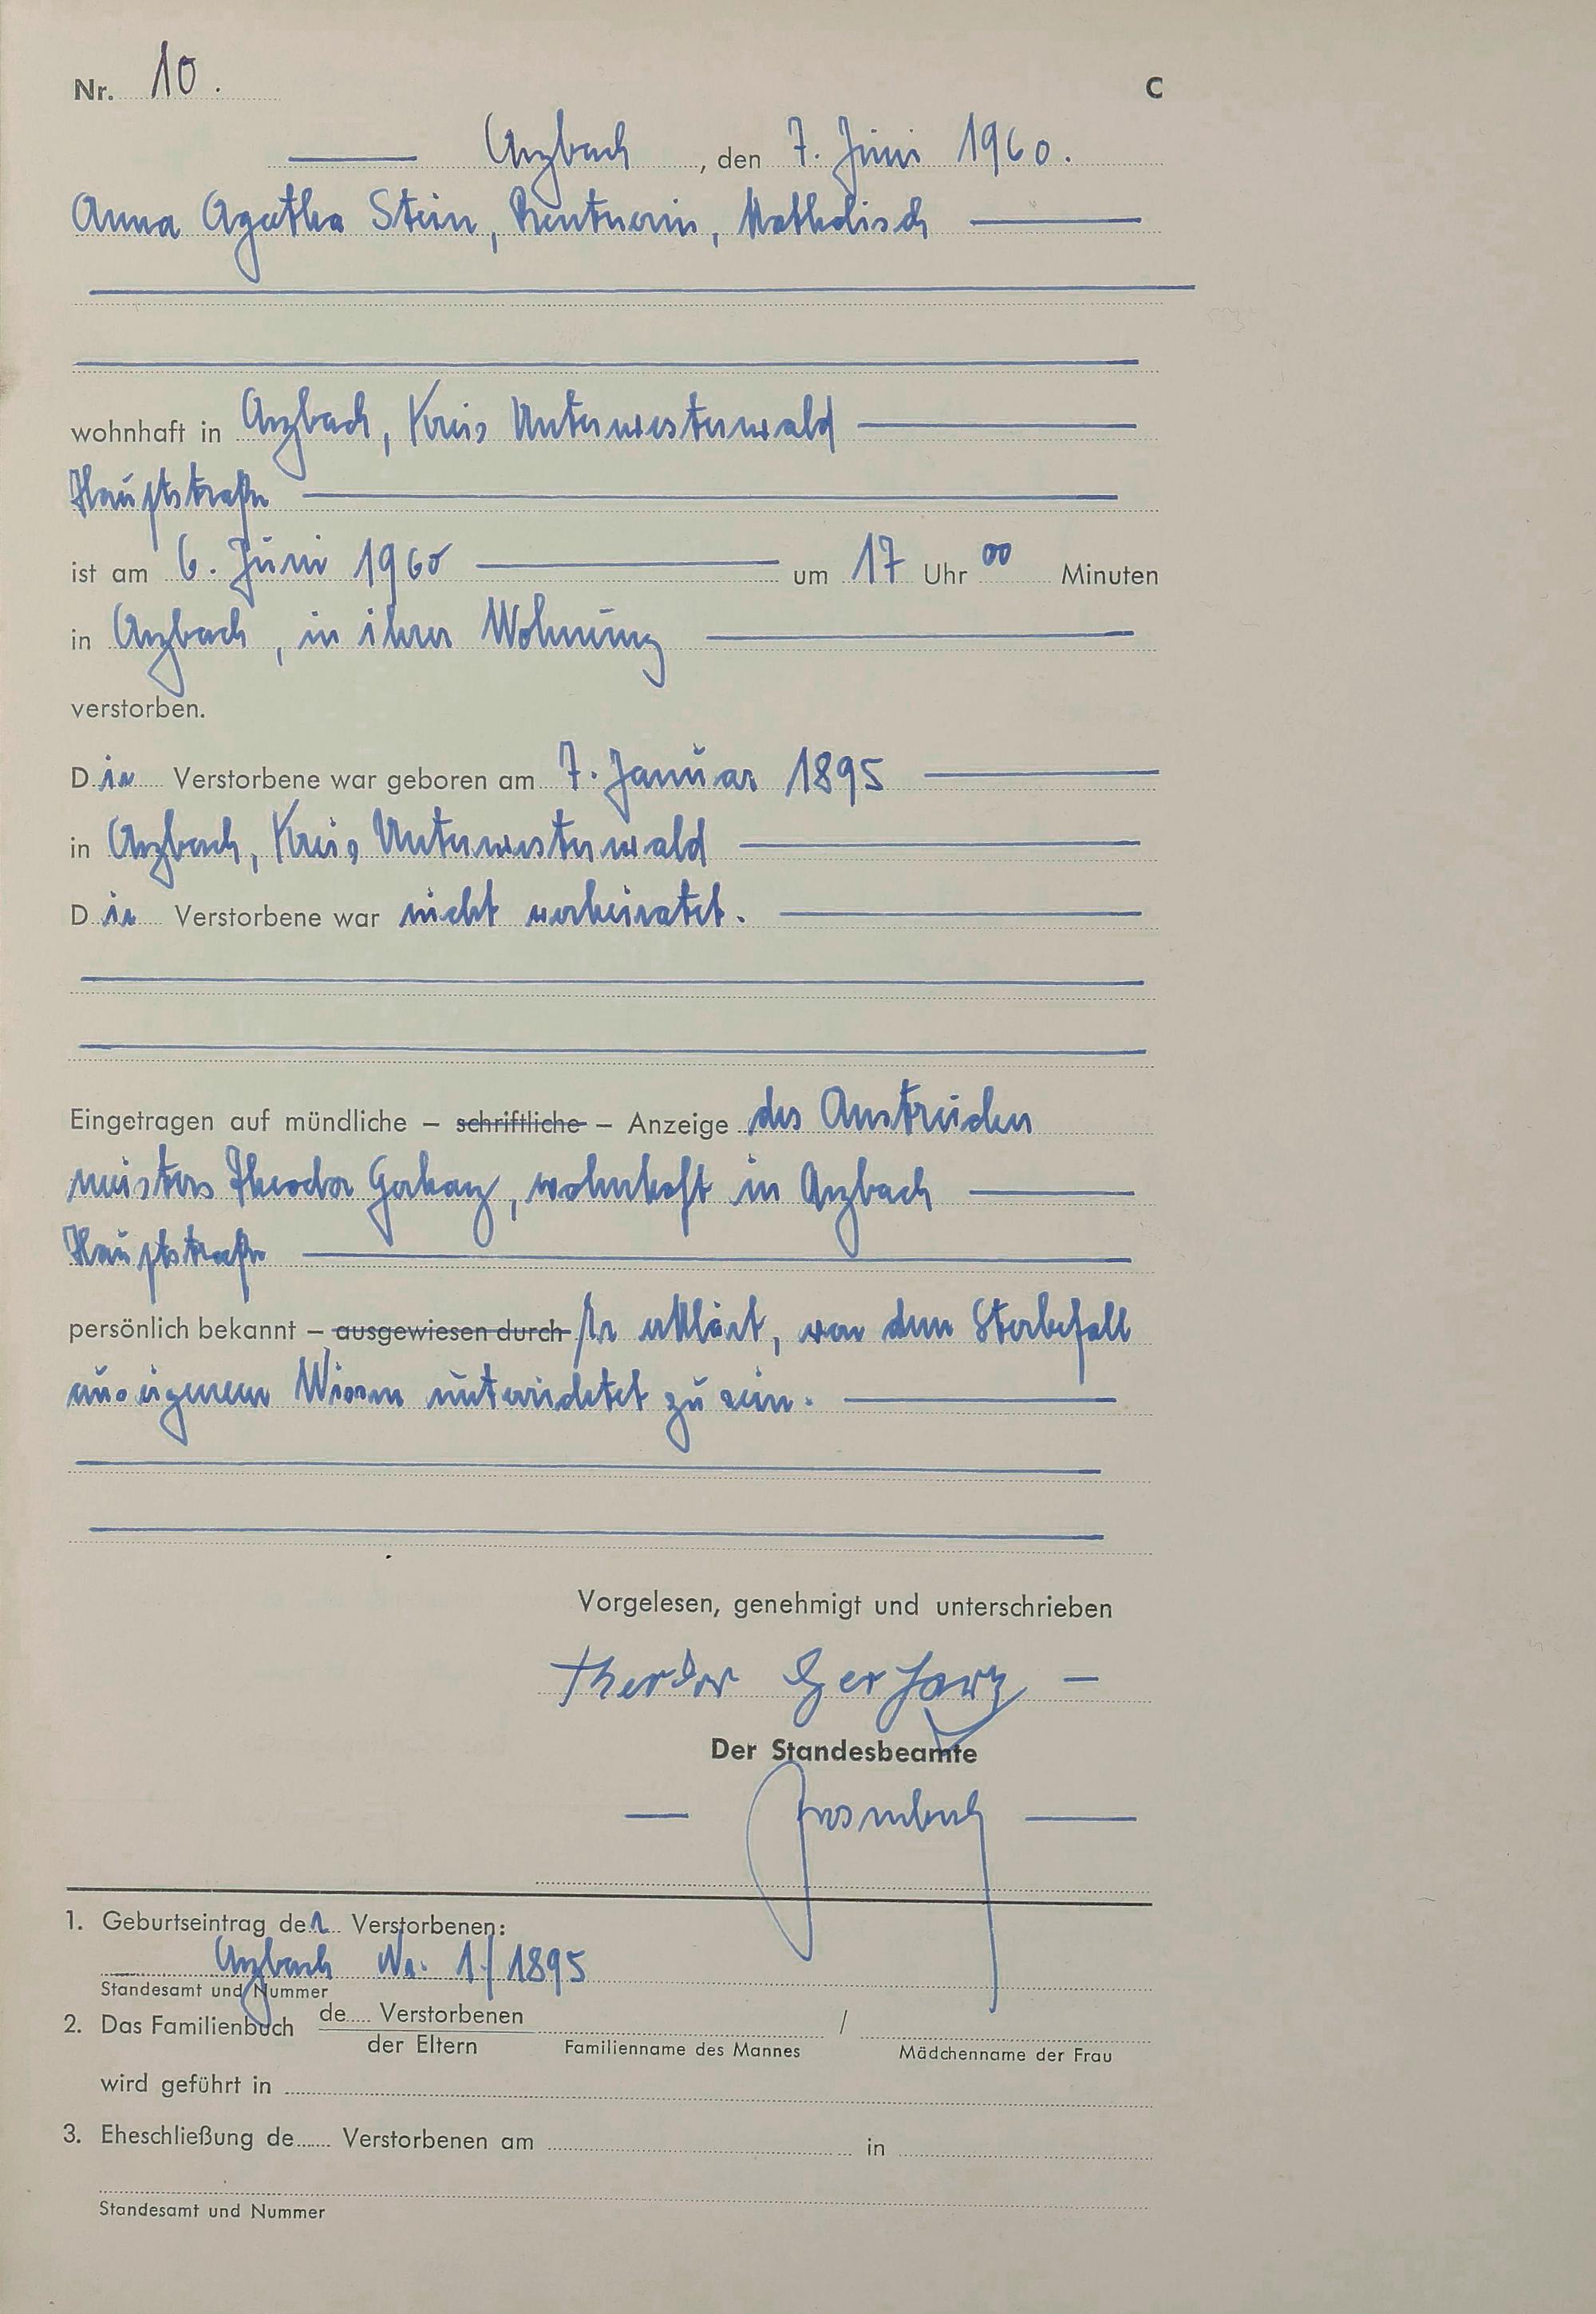 Nr. 10. C
Arzbach, den 7. Juni 1960.
Anna Agatha Stein, Rentnerin, Katholisch
wohnhaft in Arzbach, Kreis Unterwesterwald
Hauptstraße
ist am 6. Juni 1960 um 17 Uhr 00 Minuten
in Arzbach, in ihrer Wohnung
verstorben.
Die Verstorbene war geboren am 7. Januar 1895
in Arzbach, Kreis Unterwesterwald
Die Verstorbene war nicht verheiratet.
Eingetragen auf mündliche – schriftliche – Anzeige des Anstreicher
meisters Theodor Gerharz, wohnhaft in Arzbach
Hauptstraße
persönlich bekannt – ausgewiesen durch Er erklärt, von dem Sterbefall
aus eigenem Wissen unterrichtet zu sein.
Vorgelesen, genehmigt und unterschrieben
Theodor Gerharz
Der Standesbeamte
1. Geburtseintrag der Verstorbenen:
Arzbach Nr. 1/1895
Standesamt und Nummer
2. Das Familienbuch de Verstorbenen /
der Eltern Familienname des Mannes Mädchenname der Frau
wird geführt in
3. Eheschließung de Verstorbenen am in
Standesamt und Nummer